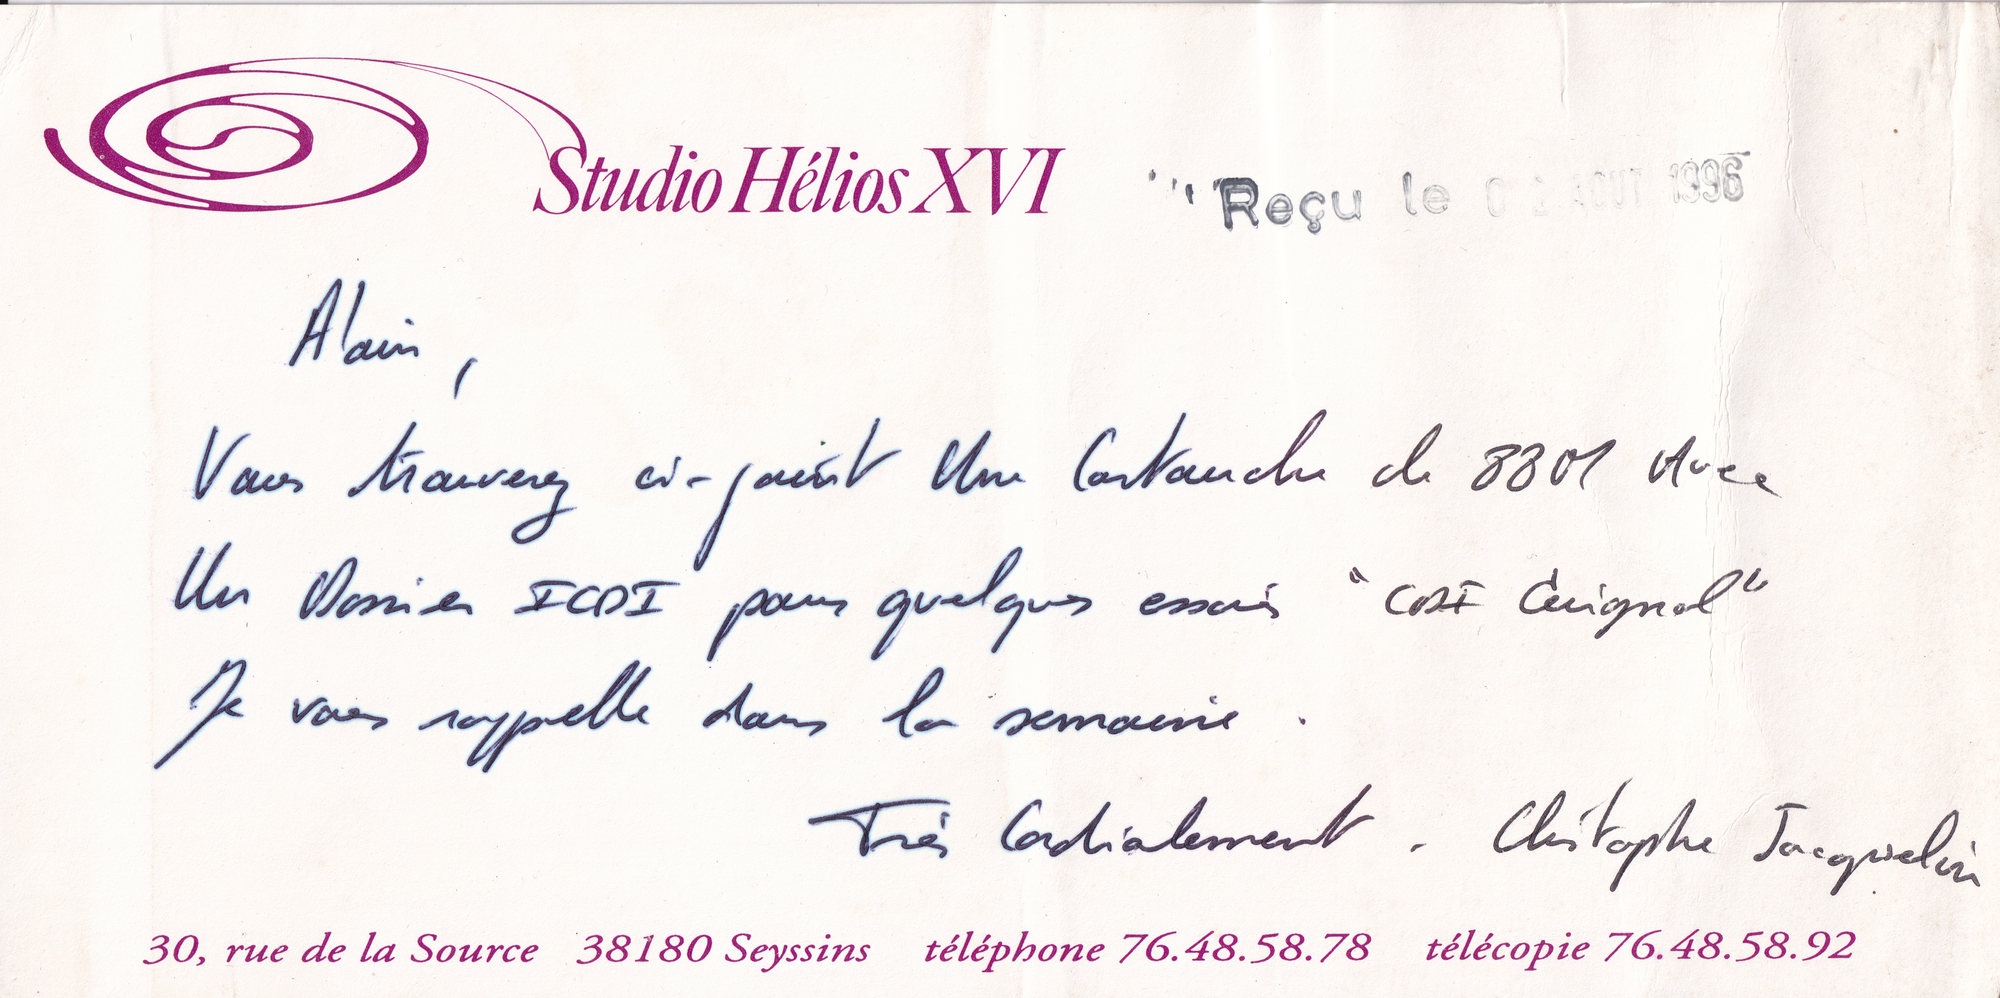 Studio Hélios XVI
Reçu le 02 AOUT 1996
Alain,
Vous trouverez ci-joint Une Cartouche de 8801 Avec
Un Dossier ICDI pour quelques essais "CDI Guignol"
Je vous rappelle dans la semaine.
Très Cordialement. Christophe Jacquelin
30, rue de la Source 38180 Seyssins téléphone 76.48.58.78 télécopie 76.48.58.92